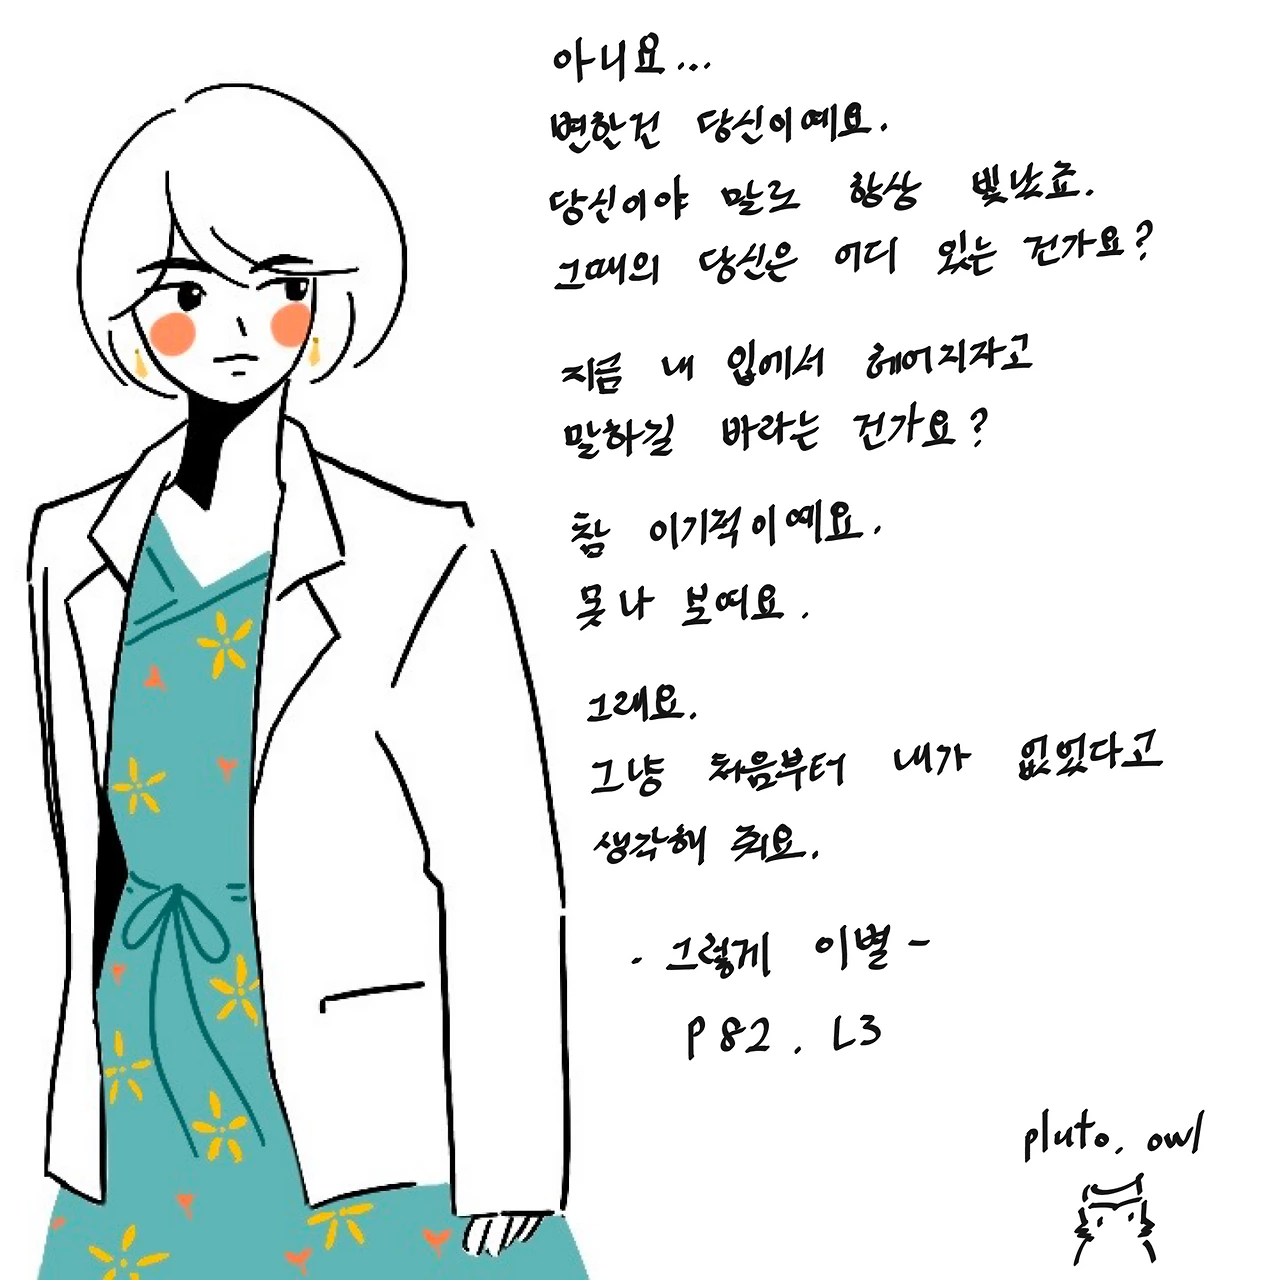 아니요...
변한건 당신이예요.
당신이야 말로 항상 빛났죠.
그때의 당신은 어디 있는 건가요?
지금 내 입에서 헤어지자고
말하길 바라는 건가요?
참 이기적이예요.
못나 보여요.
그래요.
그냥 처음부터 내가 없었다고
생각해 줘요.
- 그렇게 이별 -
P82. L3
pluto. owl